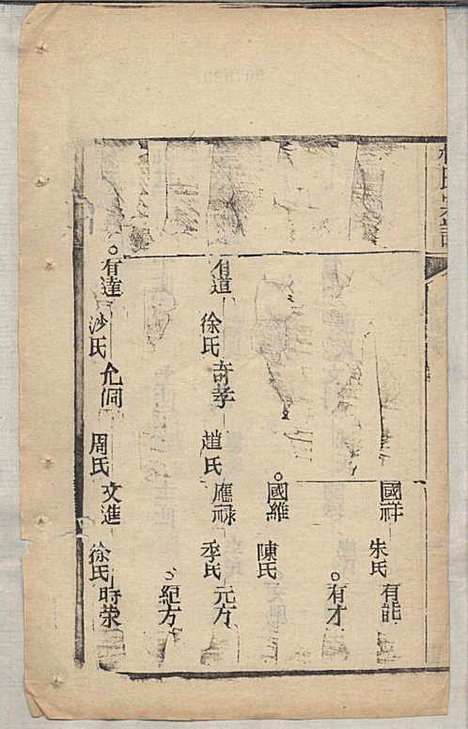 國祥
朱氏
有能
有才
國維
陳氏
有道
徐氏
奇孝
趙氏
應祿
季氏
元方
紀方
有達
沙氏
允洞
周氏
文進
徐氏
時榮